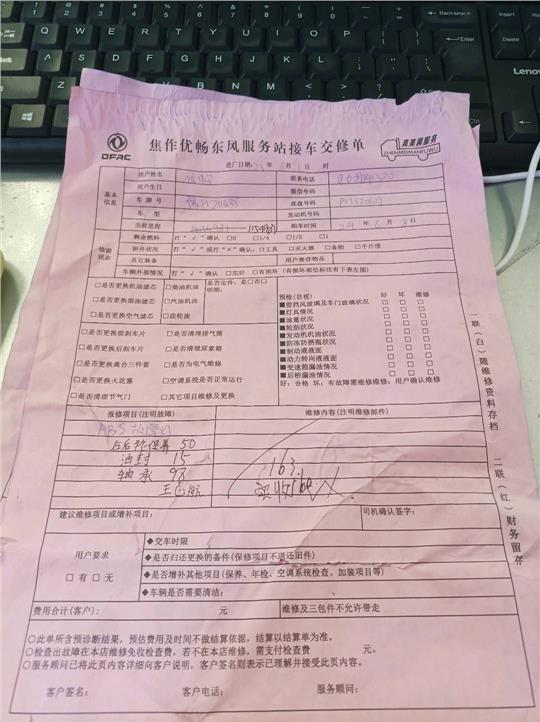 Backspace
Enter
Shift
Lenovo
DFAC
焦作优畅东风服务站接车交修单
真美满服务
ZHENMEIMANFUWU
进厂日期: 年 月 日 时
基本信息
用户姓名
联系电话
用户生日
微信号码
车牌号
底盘号码
车型
发动机号码
当前里程
购车时间 年 月 日
修前状态
剩余燃料 打“√”确认 □0 □1/4 □1/2 □1
附件状况 打“√”或打“×”确认:□工具 □灭火器 □备胎 □千斤顶
其它装备
用户寄存物品
车辆外部情况 打“√”确认 □完好 □有损坏(有损坏部位标注有下表左图)
□是否更换机油滤芯 □柴油机油
□是否更换柴油滤芯 □汽油机油
□是否更换空气滤芯 □齿轮油
□是否更换前刹车片 □是否清理排气筒
□是否更换后刹车片 □是否清理尿素箱
□是否更换离合三件套 □是否为电气维修
□是否更换火花塞 □空调系统是否正常运行
□是否清理节气门 □其它项目维修及更换
预检(目视) 好 坏 维修
■前挡风玻璃及车门玻璃状况
■灯具情况
■油量状况
■轮胎状况
■发动机机油状况
■防冻防锈瓶状况
■制动液液面
■动力转向液液面
■变速箱漏油情况
■后桥漏油情况
好:合格 坏:有故障需维修 维修:用户确认维修
报修项目(注明故障)
维修内容(注明维修部件)
ABS故障灯
左后轮保养 50
油封 15
轴承 98
163
建议维修项目或增补项目:
司机确认签字:
用户要求
□有 □无
◆交车时限
◆是否归还更换的备件(保修项目不退还旧件)
◆是否增补其他项目(保养、年检、空调系统检查、加装项目等)
◆车辆是否需要清洁:
费用合计(客户): 元
维修及三包件不允许带走
○此单所含预诊断结果,预估费用及时间不做结算依据,结算以结算单为准。
○检查出故障在本店维修免收检查费,若不在本店维修,需支付检查费 元。
○服务顾问已将此页内容详细向客户说明,客户签名则表示已理解并接受此页内容。
客户签名: 客户电话: 服务顾问:
一联(白)随维修资料存档
二联(红)财务留存